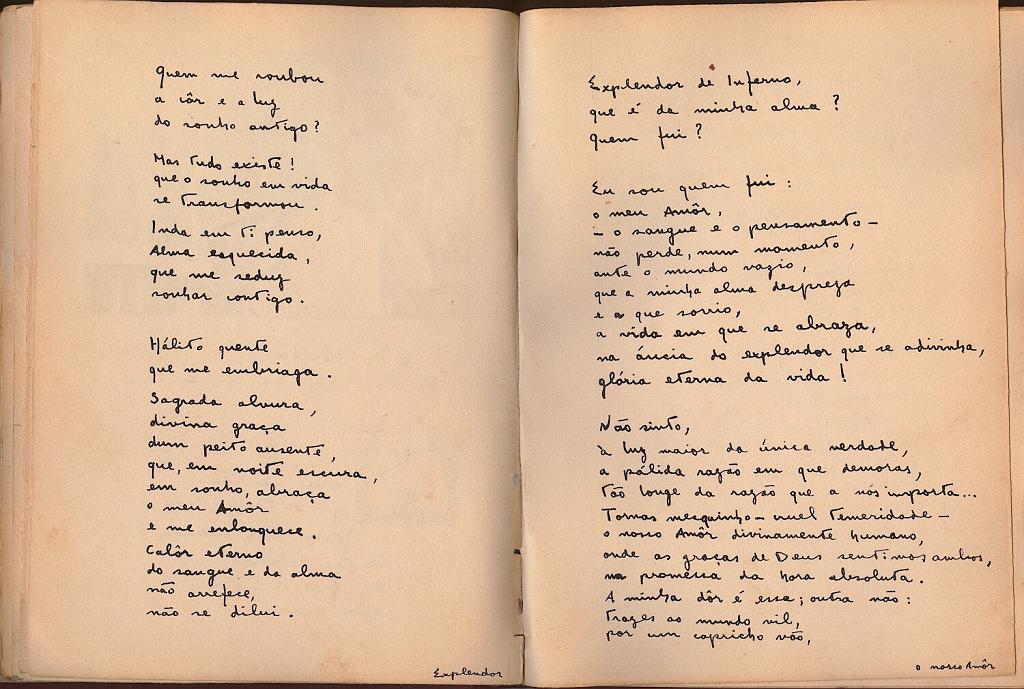 Quem me roubou
a côr e a luz
do sonho antigo?
Mas tudo existe!
que o sonho em vida
se transformou.
Inda em ti penso,
Alma esquecida,
que me seduz
sonhar contigo.
Hálito quente
que me embriaga.
Sagrada alvura,
divina graça
dum peito ausente,
que, em noite escura,
em sonho, abraça
o meu Amôr
e me enlouquece.
Calôr eterno
do sangue e da alma
não arrefece,
não se dilui.
Explendor
Explendor de Inferno,
que é da minha alma?
Quem fui?
Eu sou quem fui:
o meu Amôr,
- o sangue e o pensamento -
não perde, num momento,
ante o mundo vazio,
que a minha alma despreza
e a que sorrio,
a vida em que se abraza,
na ância do explendor que se adivinha,
glória eterna da vida!
Não sinto,
à luz maior da única verdade,
a pálida razão em que demoras,
tão longe da razão que a nós importa...
Tornas mesquinho - cruel temeridade -
o nosso Amôr divinamente humano,
onde as graças de Deus sentimos ambos,
na promessa da hora absoluta.
A minha dôr é essa; outra não:
trazes ao mundo vil,
por um capricho vão,
o nosso Amôr